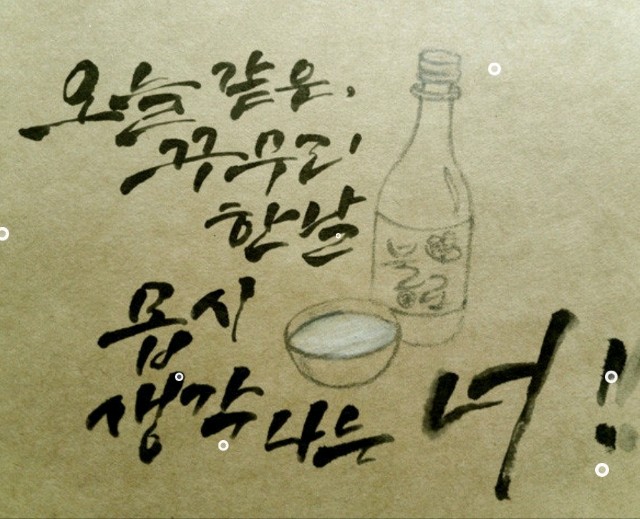 오늘 같은,
꾸무리
한날
몹시
생각나는 너!!